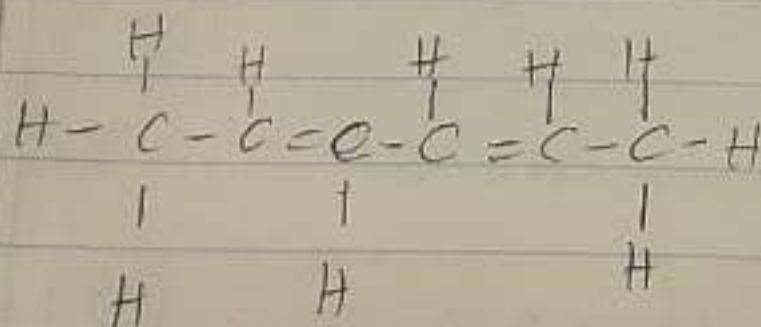 H H H H H
H - C - C = C - C = C - C - H
| | |
H H H